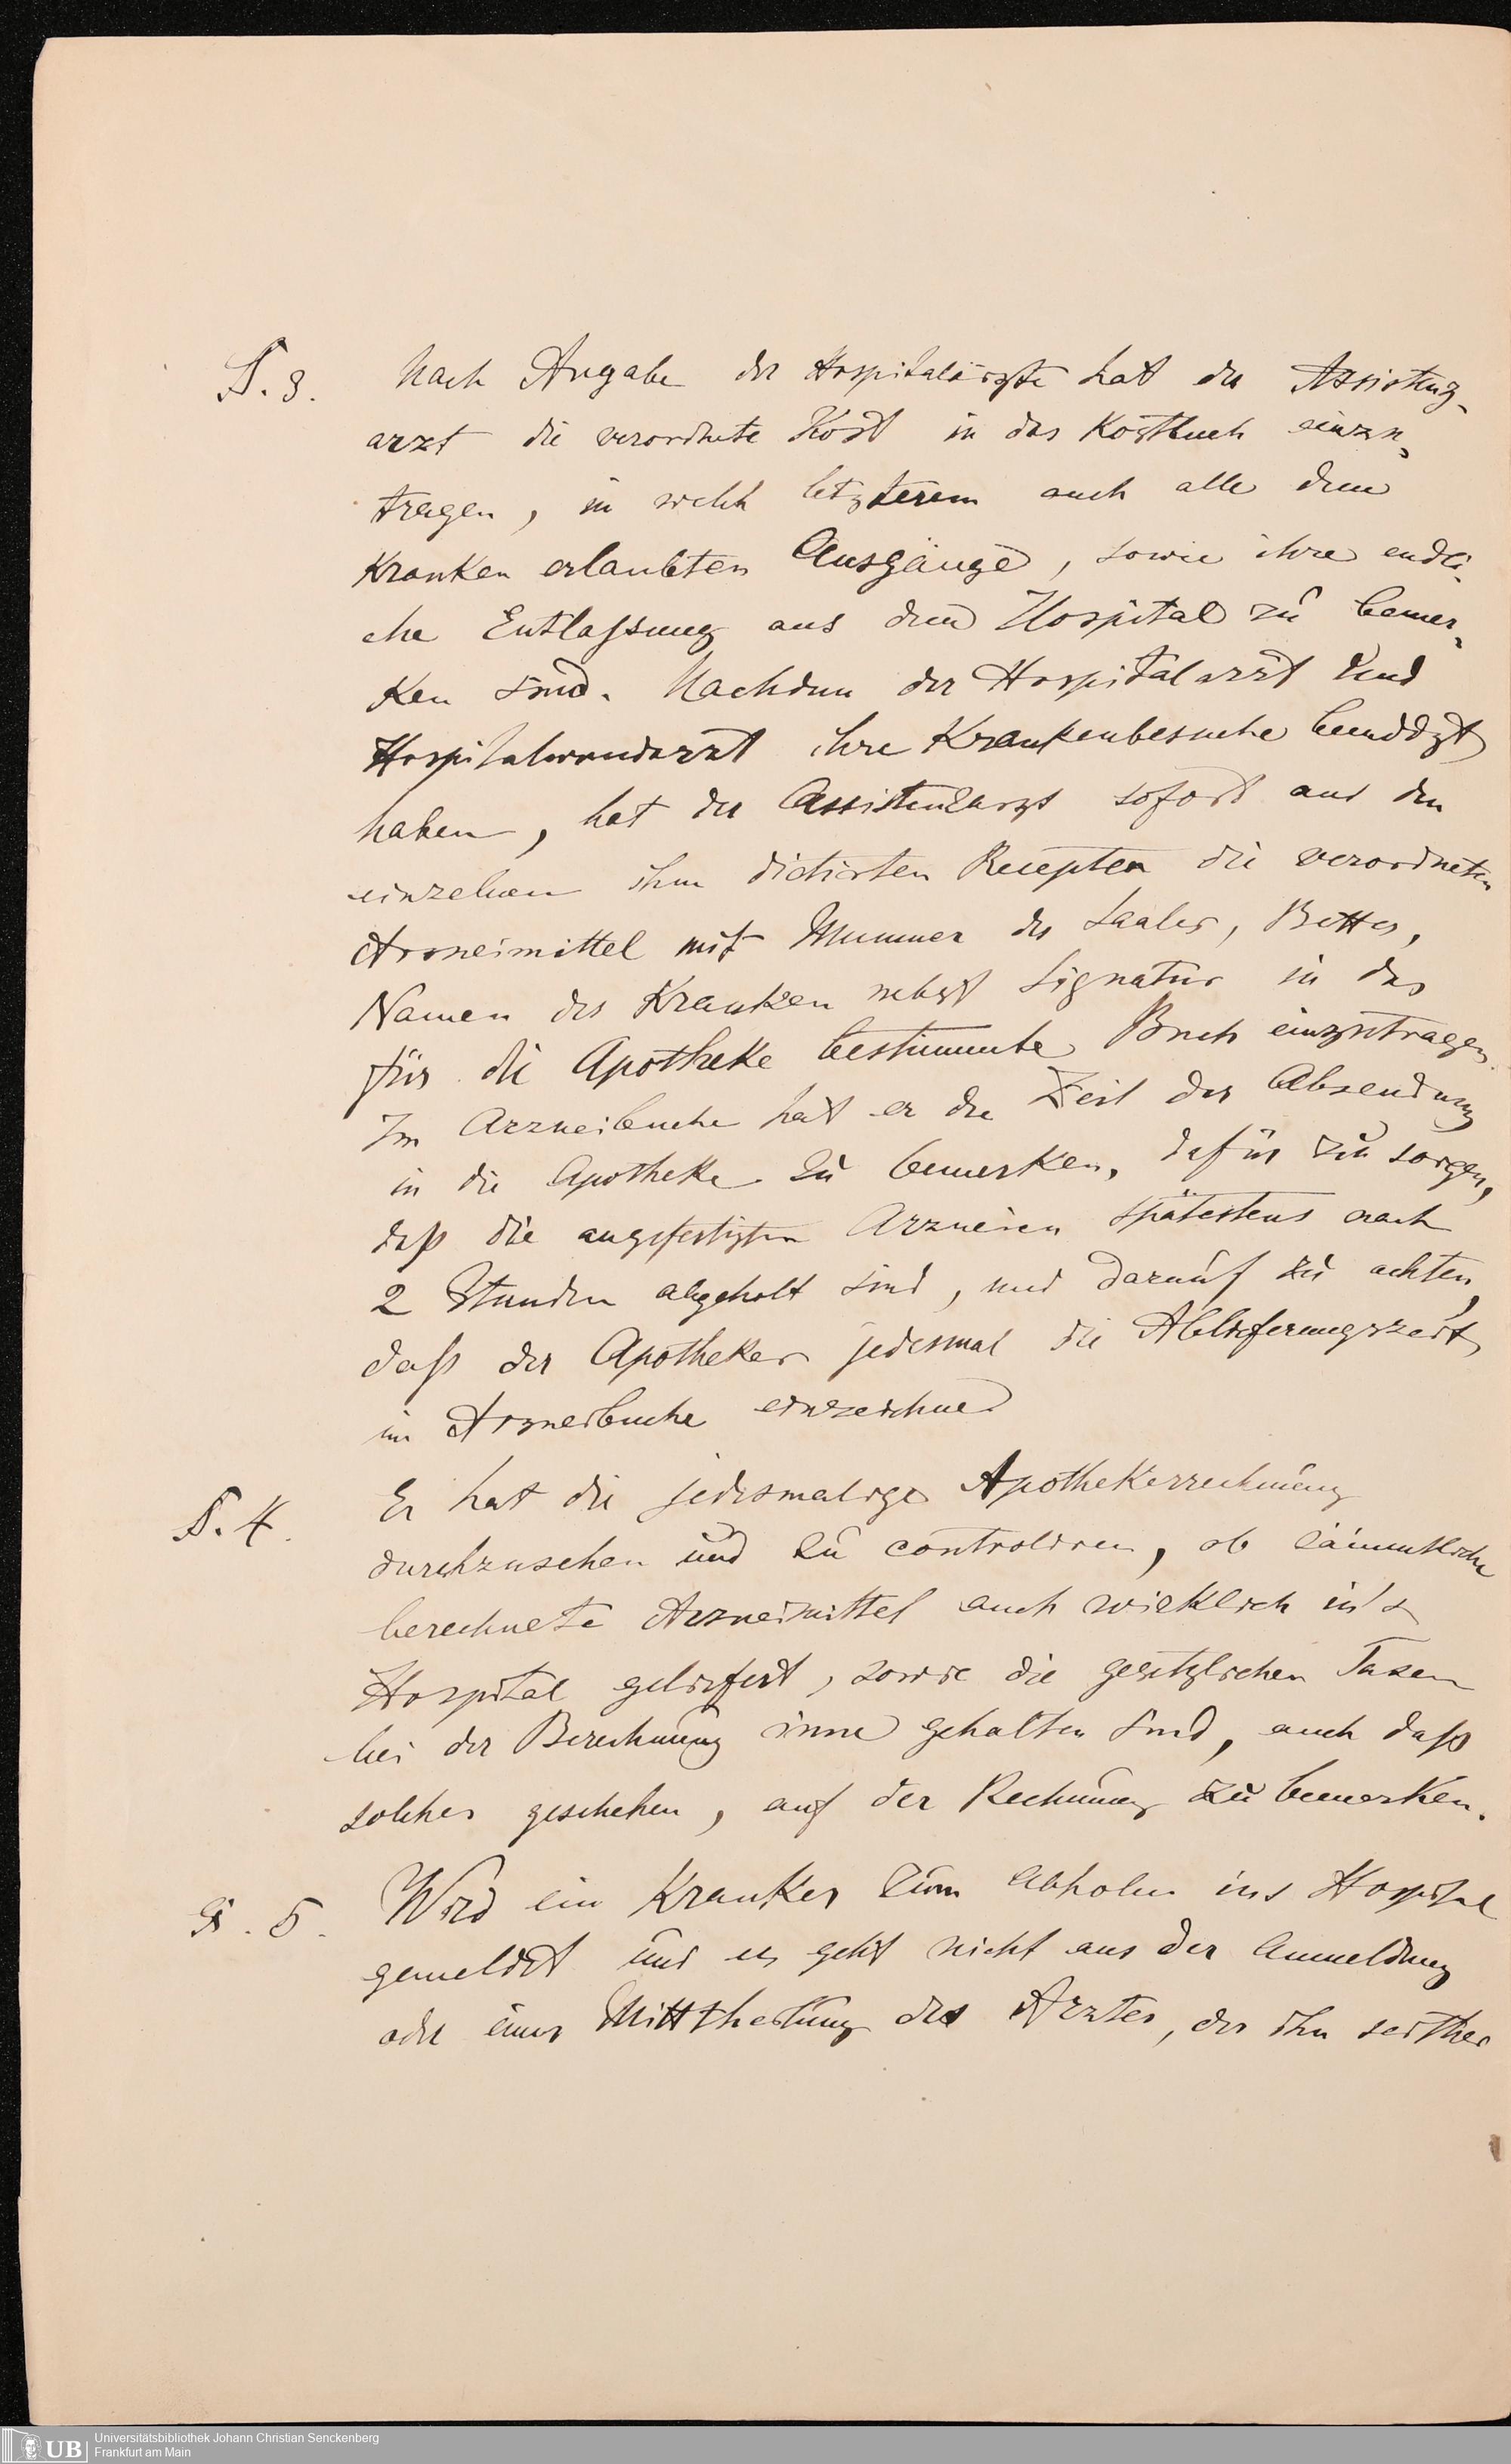 §. 3. Nach Angabe der Hospitalärzte hat der Assistenz-
arzt die verordnete Kost in das Kostbuch einzu-
tragen, in welch letzterem auch alle dem
Kranken erlaubten Ausgänge, sowie ihre endli-
che Entlassung aus dem Hospital zu bemer-
ken sind. Nachdem der Hospitalarzt und
Hospitalwundarzt ihre Krankenbesuche beendigt
haben, hat der Assistenzarzt sofort aus den
einzelnen ihm dictirten Recepten die verordneten
Arzneimittel mit Nummer des Saales, Bettes,
Namen des Kranken nebst Signatur in das
für die Apotheke bestimmte Buch einzutragen.
Im Arzneibuche hat er die Zeit der Absendung
in die Apotheke zu bemerken, dafür zu sorgen,
daß die angefertigten Arzneien spätestens nach
2 Stunden abgeholt sind, und darauf zu achten,
daß der Apotheker jedesmal die Ablieferungszeit
im Arzneibuche einzeichne
§. 4. Er hat die jedesmalige Apothekerrechnung
durchzusehen und zu controliren, ob sämmtliche
berechnete Arzneimittel auch wirklich in's
Hospital geliefert, sowie die gesetzlichen Taxen
bei der Berechnung inne gehalten sind, auch daß
solches geschehen, auf der Rechnung zu bemerken.
§. 5. Wird ein Kranker zum Abholen ins Hospital
gemeldet und es geht nicht aus der Anmeldung
oder einer Mittheilung des Arztes, der ihn seither
UB
Universitätsbibliothek Johann Christian Senckenberg
Frankfurt am Main